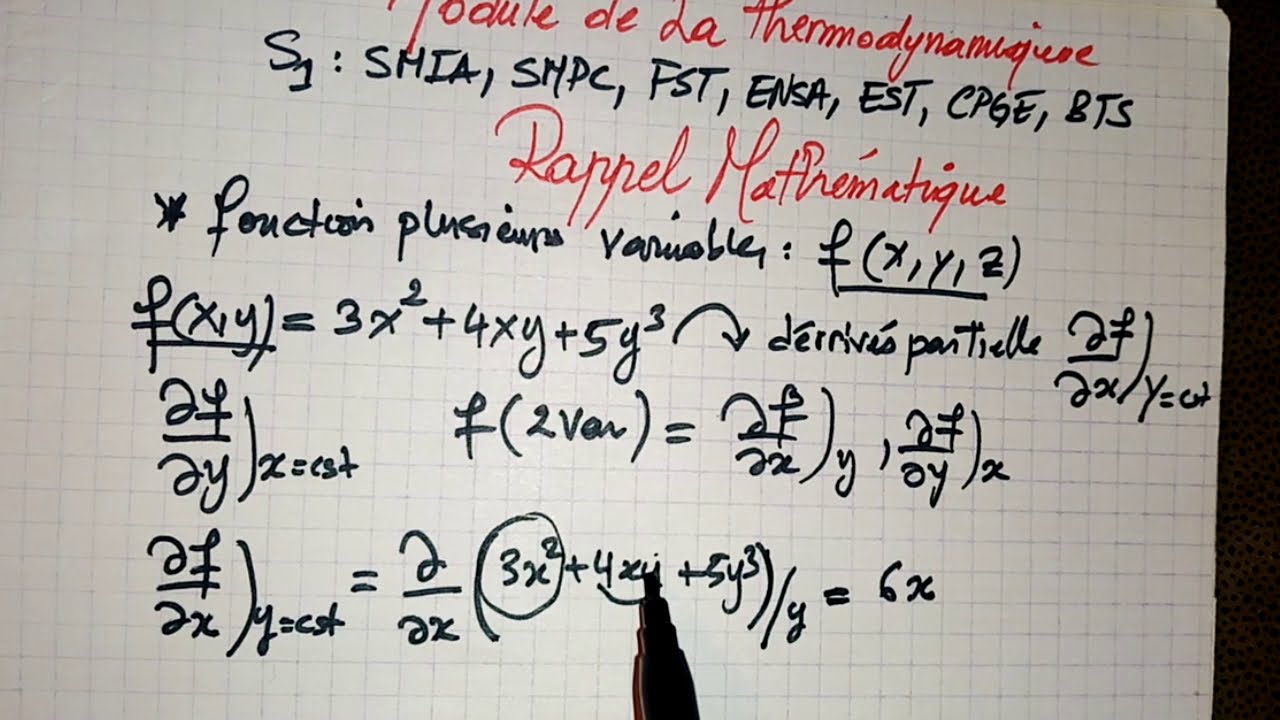 Module de La thermodynamique
S1 : SMIA, SMPC, FST, ENSA, EST, CPGE, BTS
Rappel Mathématique
* fonction plusieurs variables : f(x, y, z)
f(x,y) = 3x² + 4xy + 5y³ ↷ dérrivés partielle ∂f/∂x)y=cst
∂f/∂y)x=cst f(2Var) = ∂f/∂x)y , ∂f/∂y)x
∂f/∂x)y=cst = ∂/∂x (3x² + 4xy + 5y³)/y = 6x